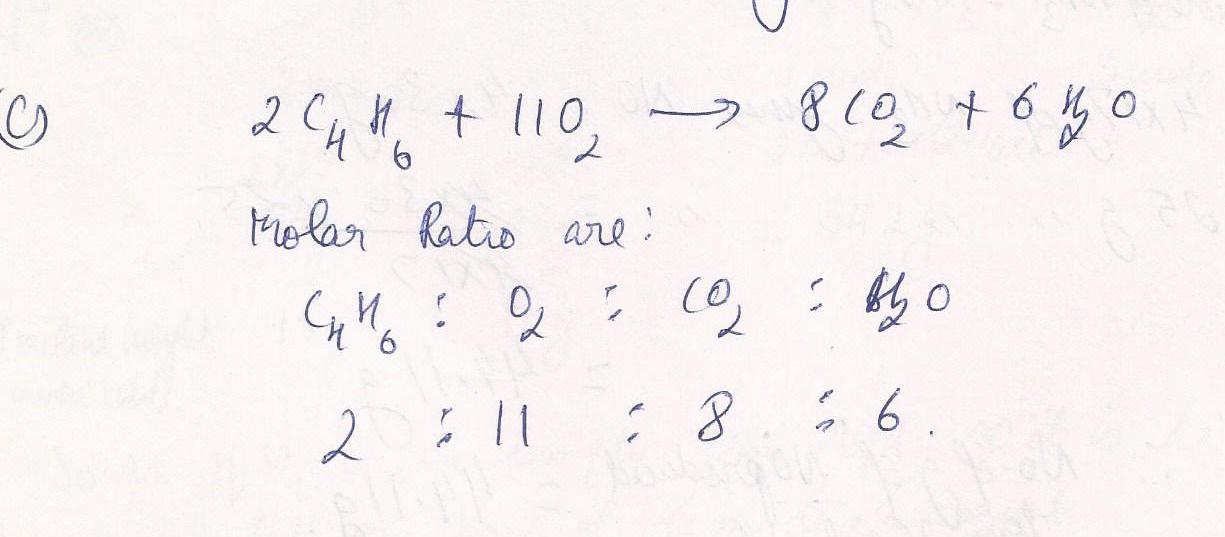 (C) 2C₄H₆ + 11O₂ → 8CO₂ + 6H₂O
Molar Ratio are:
C₄H₆ : O₂ : CO₂ : H₂O
2 : 11 : 8 : 6.